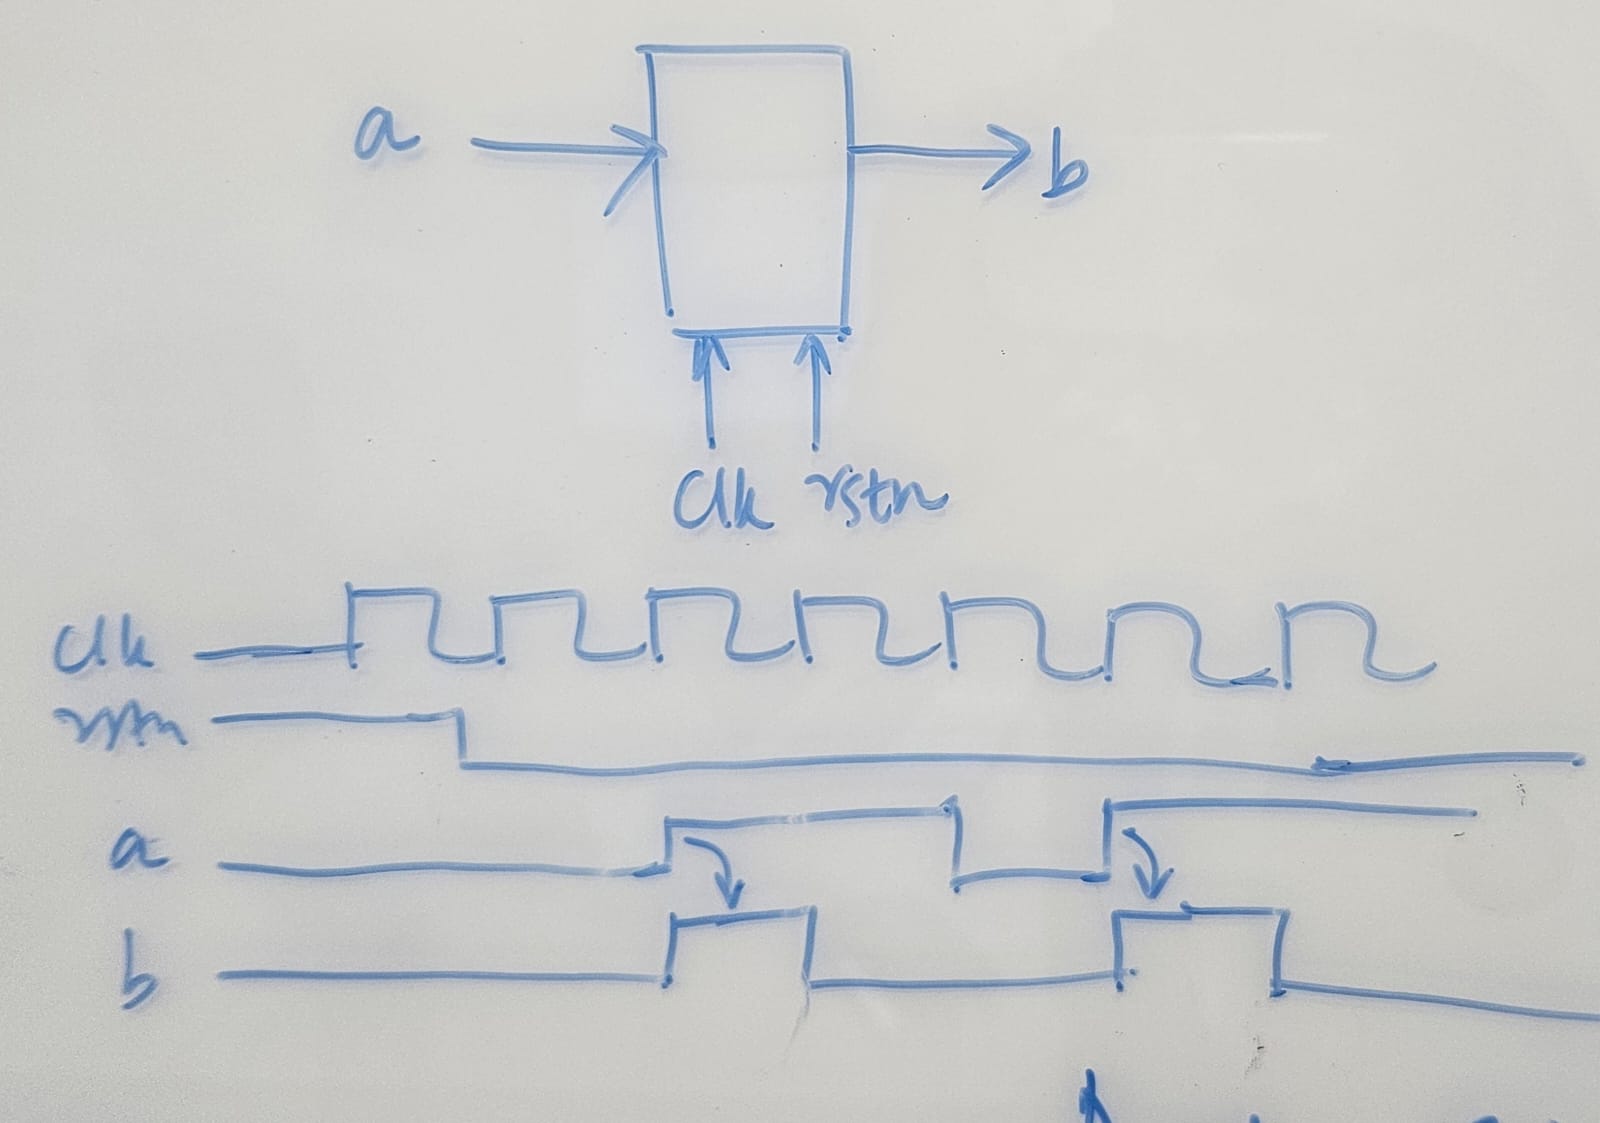 a b
clk rstn
clk
rstn
a
b